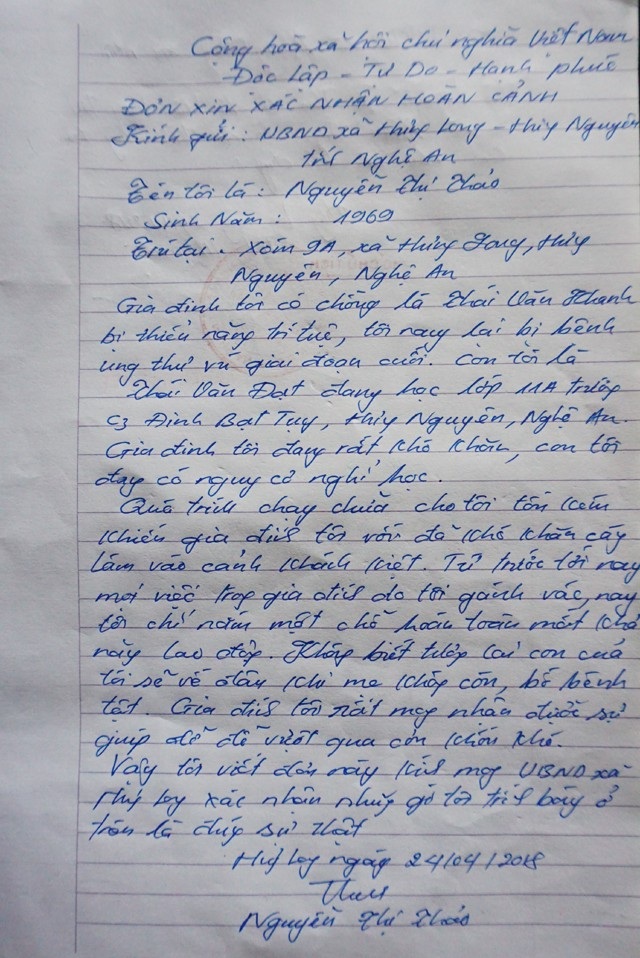 Cộng hoà xã hội chủ nghĩa Việt Nam
Độc Lập - Tự Do - Hạnh phúc
ĐƠN XIN XÁC NHẬN HOÀN CẢNH
Kính gửi : UBND xã Hưng Long - Hưng Nguyên
tỉnh Nghệ An
Tên tôi là : Nguyễn Thị Thảo
Sinh Năm : 1969
Trú tại . Xóm 9A, xã Hưng Long, Hưng
Nguyên, Nghệ An
Gia đình tôi có chồng là Thái Văn Khanh
bị thiểu năng trí tuệ, tôi nay lại bị bệnh
ung thư vú giai đoạn cuối. Con tôi là
Thái Văn Đạt đang học lớp 11A trường
C3 Đinh Bạt Tụy, Hưng Nguyên, Nghệ An.
Gia đình tôi đang rất khó khăn, con tôi
đang có nguy cơ nghỉ học.
Quá trình chạy chữa cho tôi tốn kém
khiến gia đình tôi vốn đã khó khăn càng
lâm vào cảnh khánh kiệt. Từ trước tới nay
mọi việc trong gia đình do tôi gánh vác, nay
tôi chỉ nằm một chỗ hoàn toàn mất khả
năng lao động. Không biết tương lai con của
tôi sẽ về đâu khi mẹ không còn, bố bệnh
tật. Gia đình tôi rất mong nhận được sự
giúp đỡ để vượt qua cơn khốn khó.
Vậy tôi viết đơn này kính mong UBND xã
Hưng Long xác nhận những gì tôi trình bày ở
trên là đúng sự thật
Hưng Long ngày 24/04/2018
Nguyễn Thị Thảo